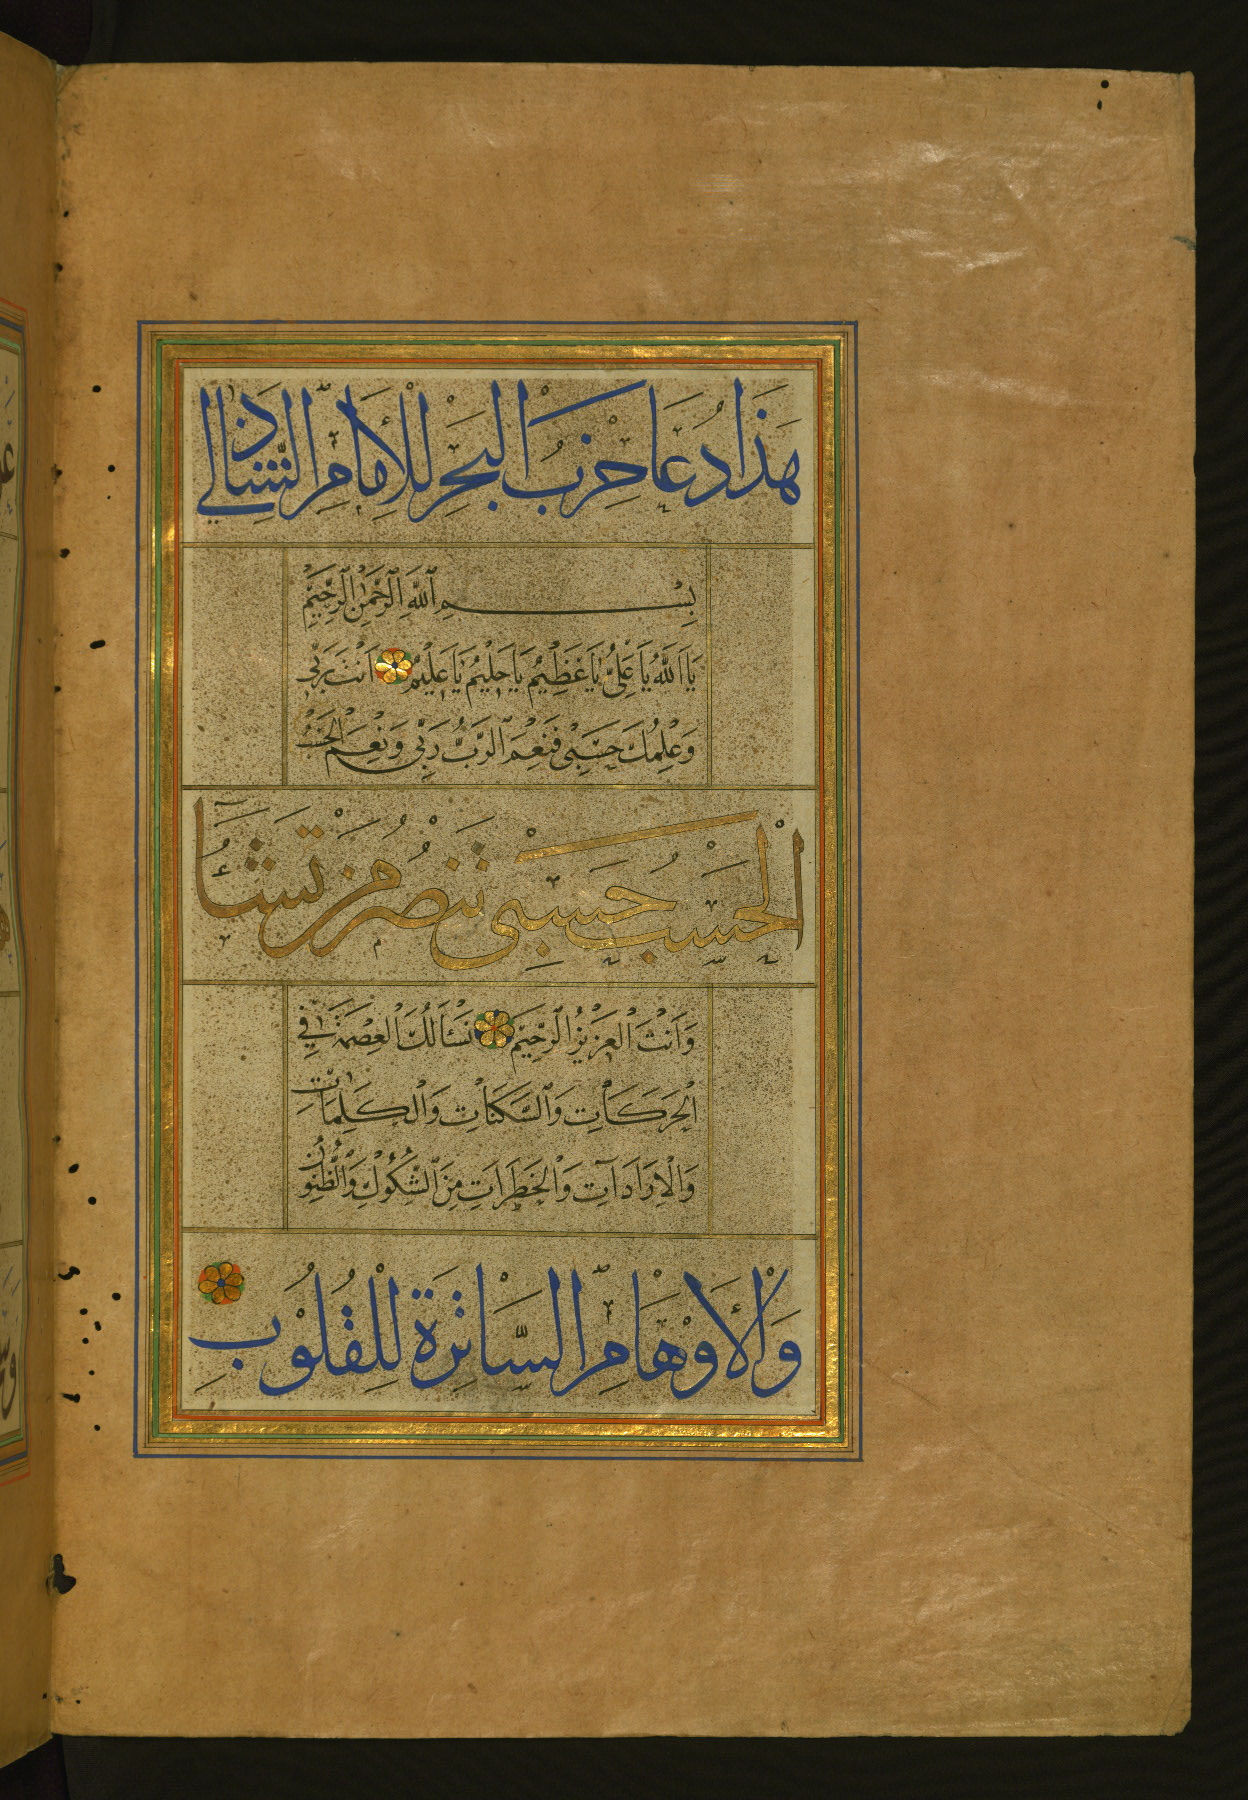 هَذَا دُعَا حِزْبُ الْبَحْرِ لِلْاِمَامِ الشَّاذِلِي
بِسْمِ ٱللَّهِ ٱلرَّحْمَٰنِ ٱلرَّحِيمِ
يَا اَللّٰهُ يَا عَلِىُّ يَا عَظِيْمُ يَا حَلِيْمُ يَا عَلِيْمُ اَنْتَ رَبِّى
وَعِلْمُكَ حَسْبِىْ فَنِعْمَ ٱلرَّبُّ رَبِّى وَنِعْمَ الْحَسْبُ
الْحَسْبُ حَسْبِىْ تَنْصُرُ مَنْ تَشَآءُ
وَاَنْتَ الْعَزِيْزُ ٱلرَّحِيْمُ نَسْأَلُكَ الْعِصْمَةَ فِي
الْحَرَكَاتِ وَٱلسَّكَنَاتِ وَالْكَلِمَاتِ
وَالْاِرَادَاتِ وَالْخَطَرَاتِ مِنَ ٱلشُّكُوْكِ وَٱلظُّنُوْنِ
وَالْاَوْهَامِ السَّاتِرَةِ لِلْقُلُوْبِ